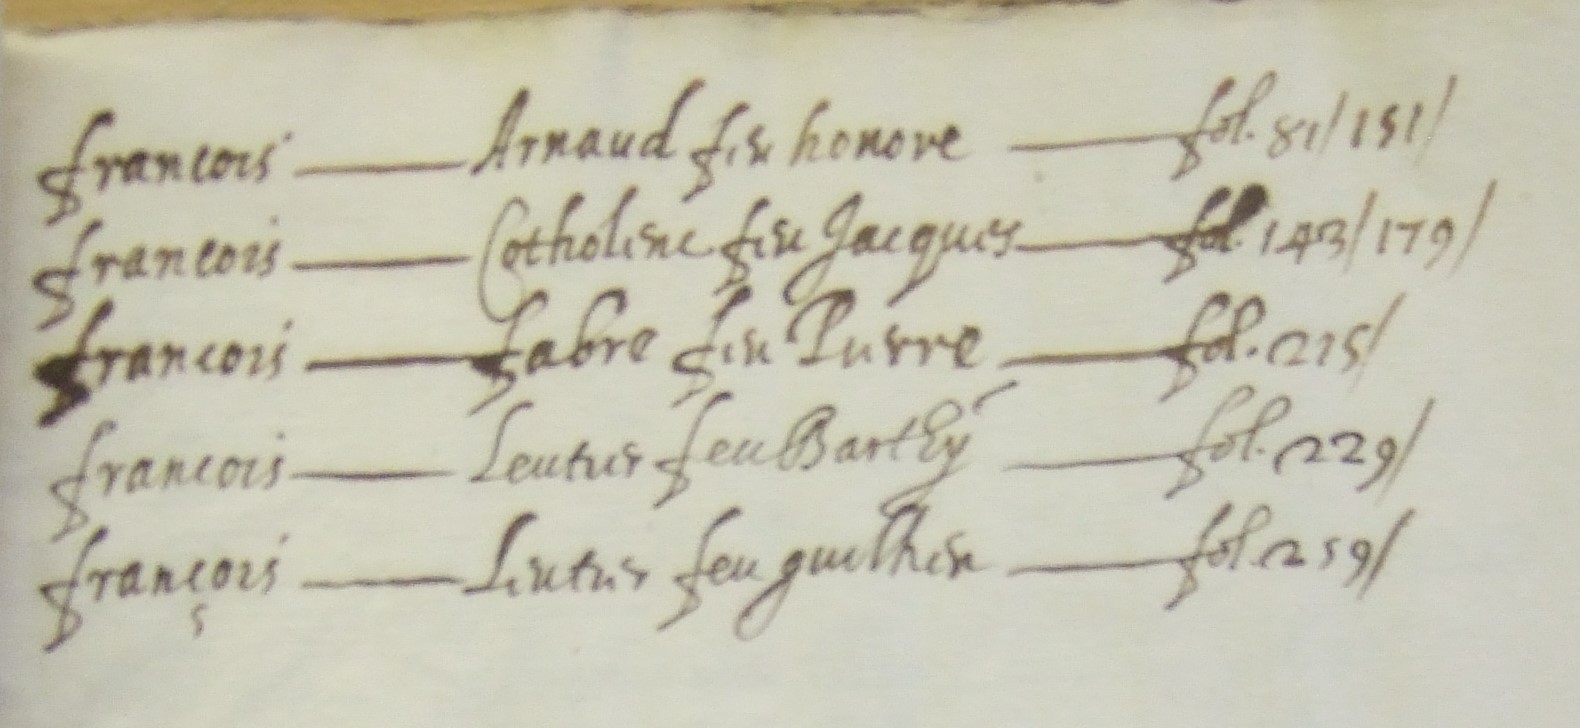 francois — Arnaud feu honore — fol. 81/151/
francois — Cotholenc feu Jacques — fol. 143/179/
francois — fabre feu Pierre — fol. 215/
francois — Leutier feu Barthy — fol. 229/
françois — Leutier feu guilhen — fol. 259/